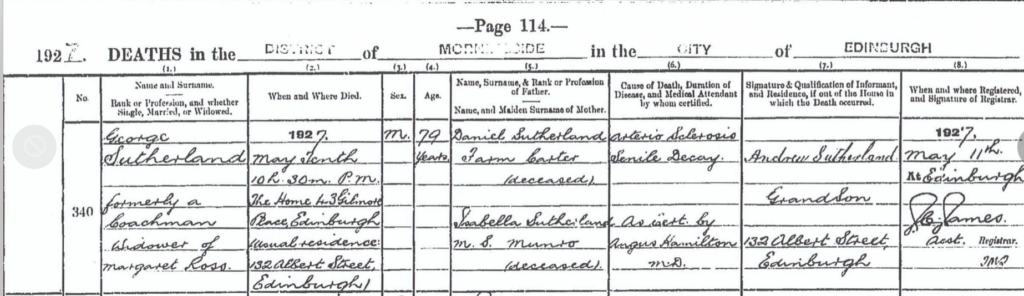 —Page 114.—
1927. DEATHS in the DISTRICT of MORNINGSIDE in the CITY of EDINBURGH
(1.) (2.) (3.) (4.) (5.) (6.) (7.) (8.)
No.
Name and Surname.
Rank or Profession, and whether
Single, Married, or Widowed.
When and Where Died.
Sex.
Age.
Name, Surname, & Rank or Profession
of Father.
Name, and Maiden Surname of Mother.
Cause of Death, Duration of
Disease, and Medical Attendant
by whom certified.
Signature & Qualification of Informant,
and Residence, if out of the House in
which the Death occurred.
When and where Registered,
and Signature of Registrar.
340
George
Sutherland
formerly a
Coachman
Widower of
Margaret Ross.
1927.
May Tenth
10h. 30m. P.M.
The Home 43 Gilmore
Place, Edinburgh
Usual residence:
132 Albert Street,
Edinburgh)
M.
79
years
Daniel Sutherland
Farm Carter
(deceased)
Isabella Sutherland
M. S. Munro
(deceased).
Arterio Sclerosis
Senile Decay.
As cert. by
Angus Hamilton
M.D.
Andrew Sutherland
Grandson
132 Albert Street,
Edinburgh
1927,
May 11th.
At Edinburgh
James.
Asst. Registrar.